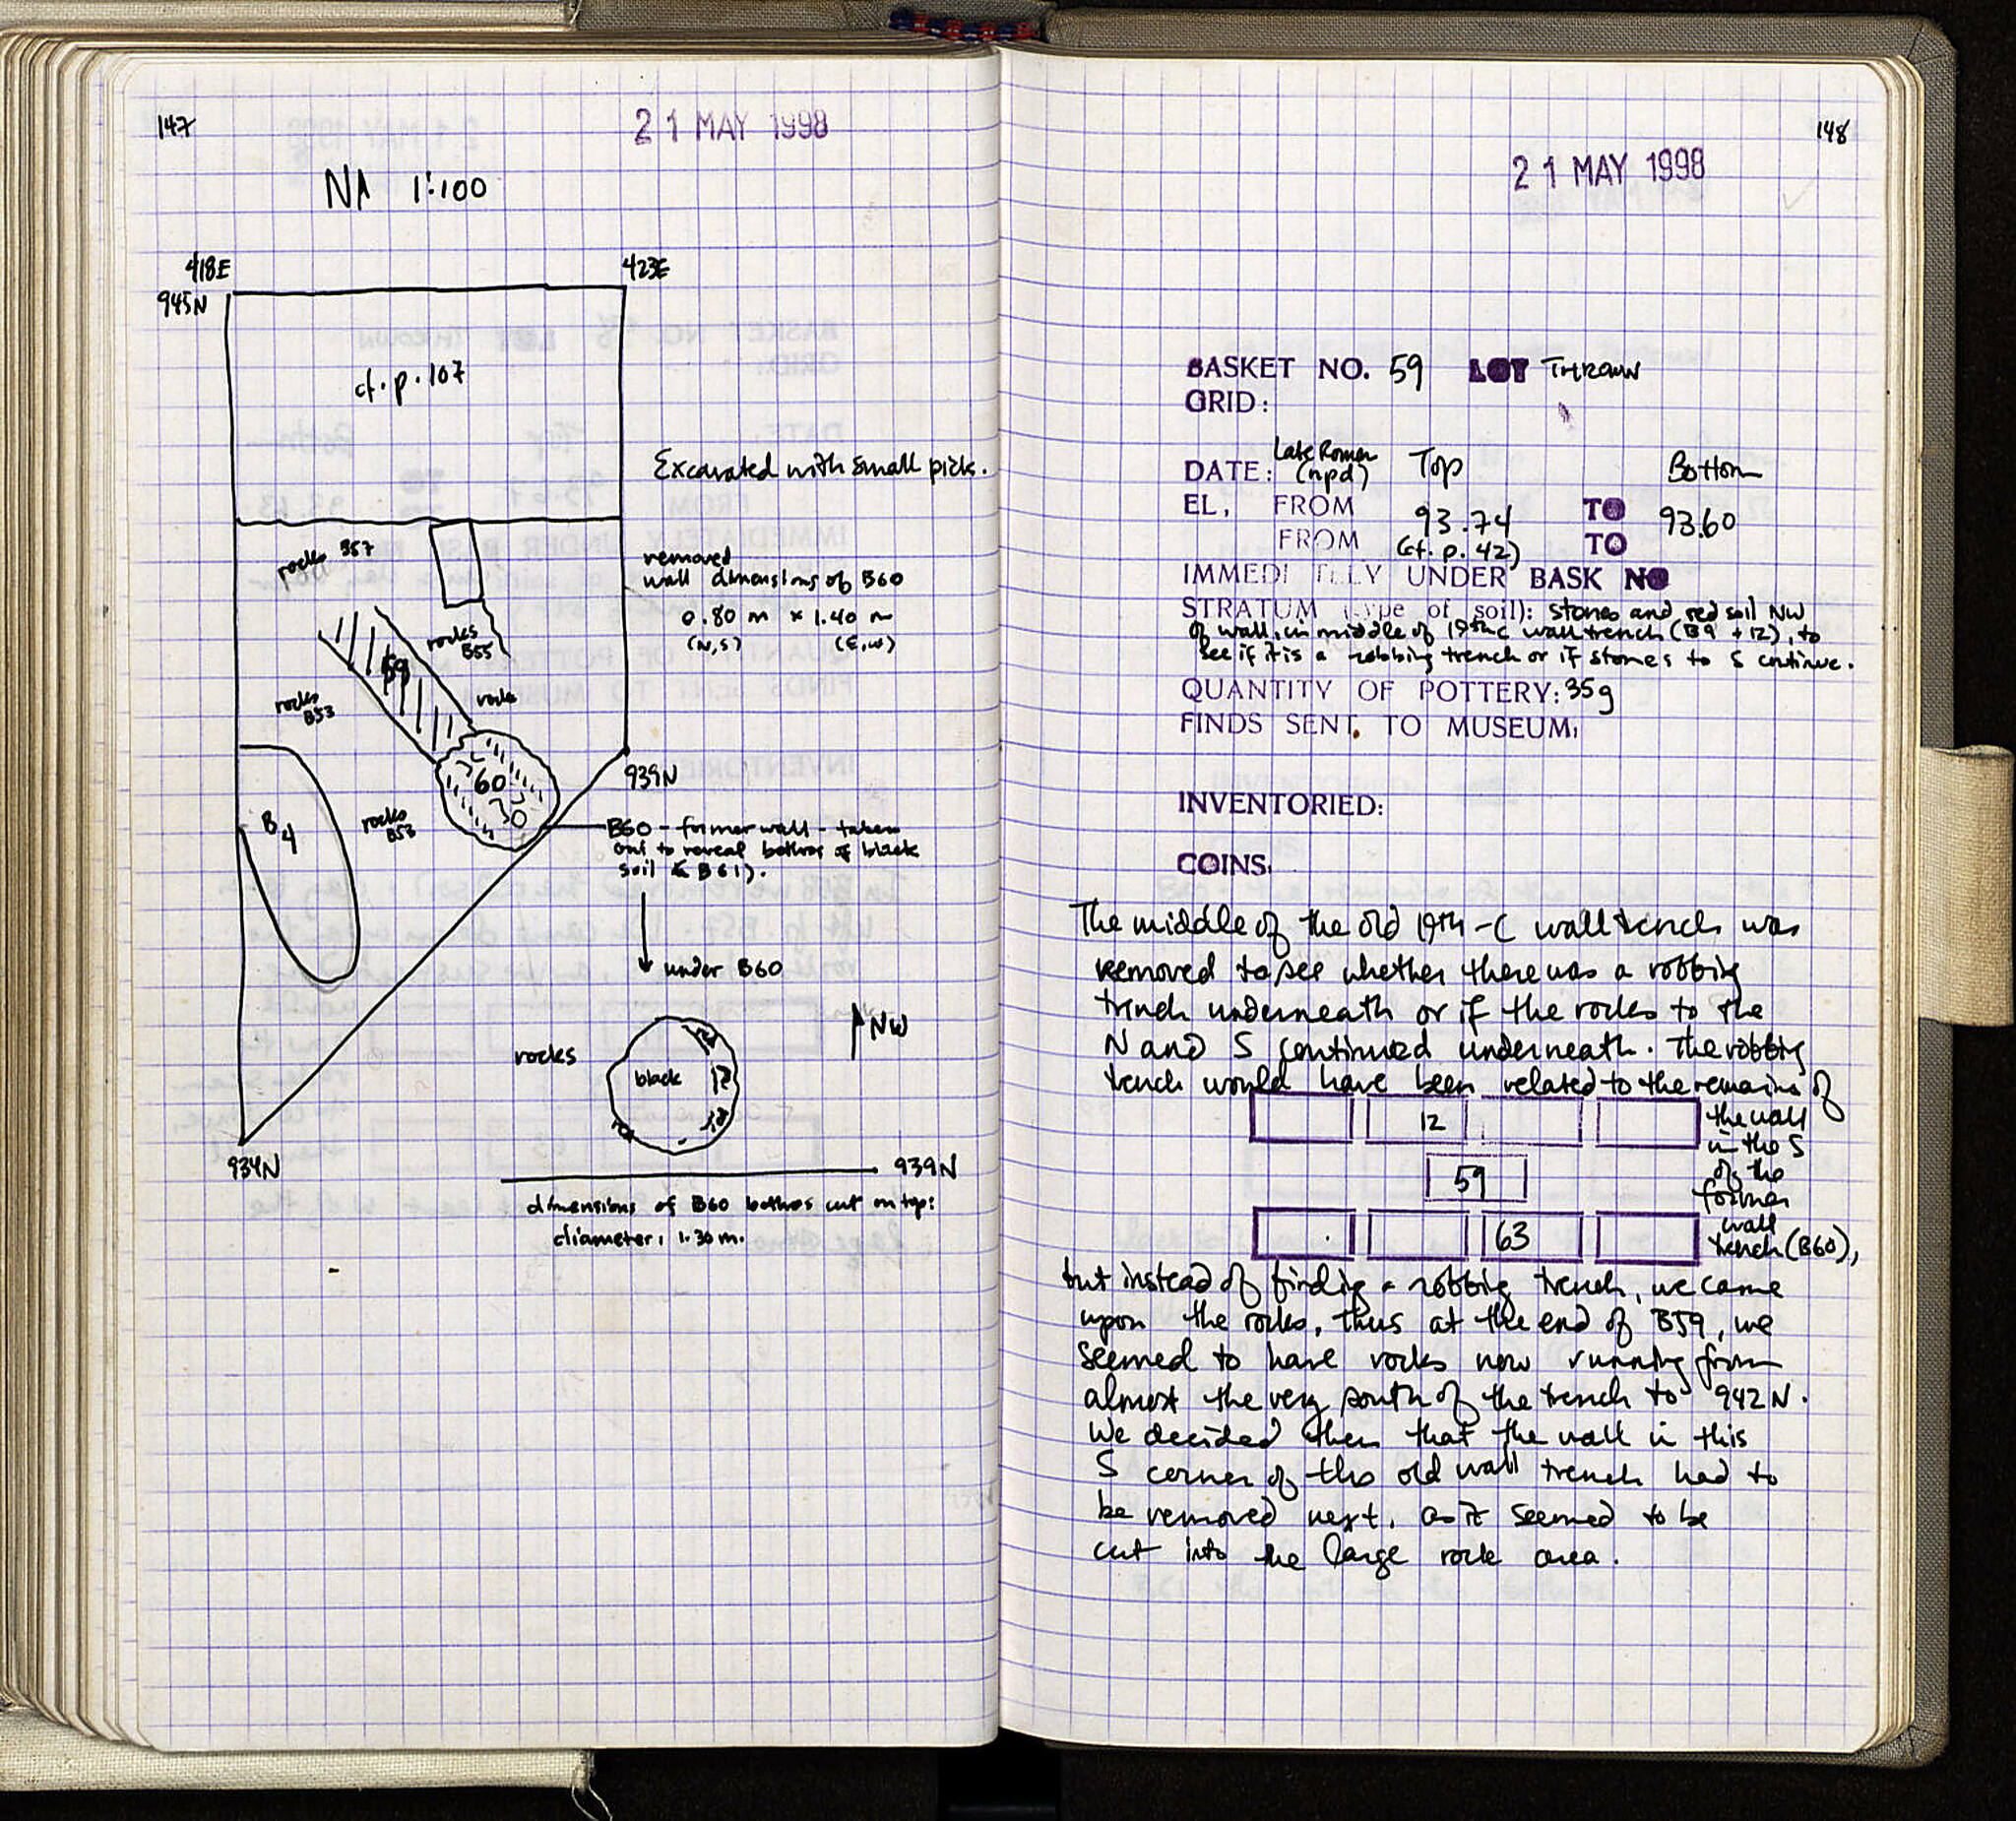 147
21 MAY 1998
N 1:100
418E
423E
945N
cf. p. 107
Excavated with small pick.
rocks B57
removed
wall dimensions of B60
0.80 m x 1.40 m
(N,S) (E,W)
rocks
B55
59
rocks
B53
rocks
60
939N
B4
rocks
B53
B60 - former wall - taken
out to reveal bothros of black
soil (B61).
under B60
NW
rocks
black
934N
939N
dimensions of B60 bothros cut on top:
diameter: 1.30 m.
148
21 MAY 1998
BASKET NO. 59 LOT THROWN
GRID:
DATE: Late Roman (npd) Top Bottom
EL, FROM 93.74 TO 93.60
FROM (cf. p. 42) TO
IMMEDI TELY UNDER BASK NO
STRATUM (type of soil): stones and red soil NW
of wall, in middle of 19thc wall trench (B9 + 12), to
see if it is a robbing trench or if stones to S continue.
QUANTITY OF POTTERY: 35g
FINDS SENT TO MUSEUM:
INVENTORIED:
COINS:
The middle of the old 19th-C wall trench was
removed to see whether there was a robbing
trench underneath or if the rocks to the
N and S continued underneath. The robbing
trench would have been related to the remains of
the wall
12
in the S
of the
59
former
wall
63
trench (B60),
but instead of finding a robbing trench, we came
upon the rocks, thus at the end of B59, we
seemed to have rocks now running from
almost the very south of the trench to 942N.
We decided then that the wall in this
S corner of the old wall trench had to
be removed next, as it seemed to be
cut into the large rock area.